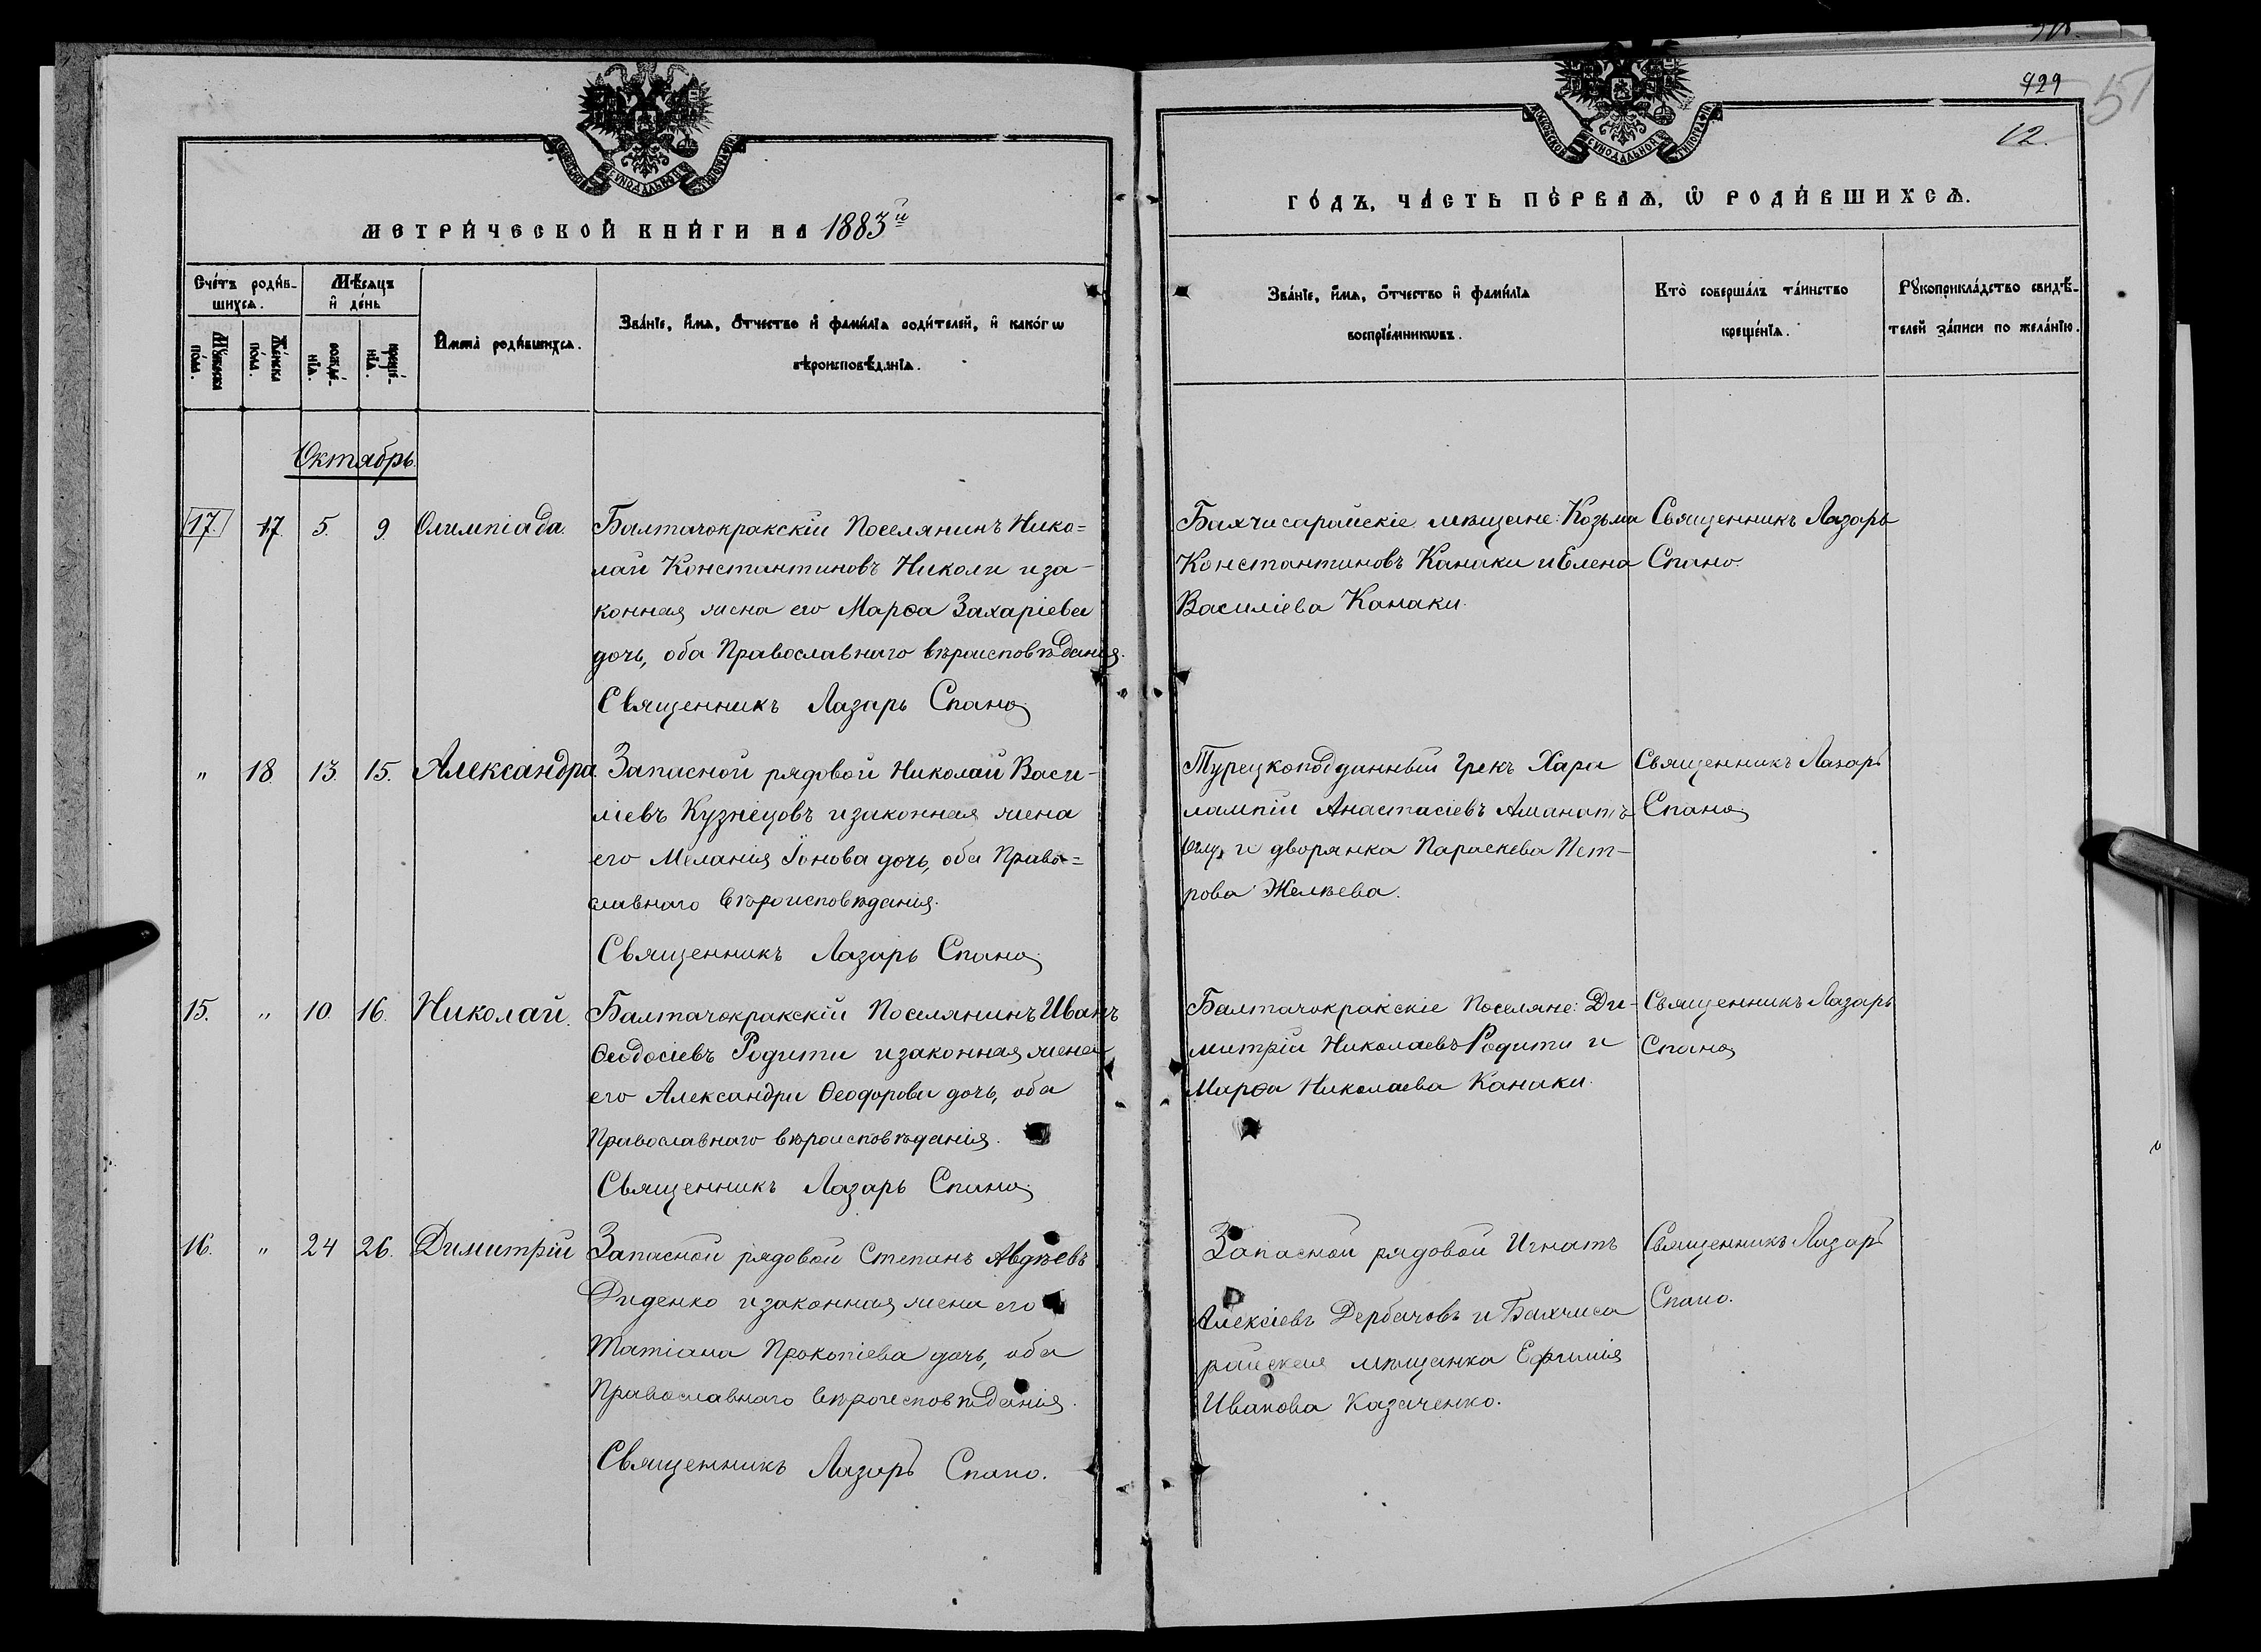 929
51
12.
МЕТРИ́ЧЕСКОЙ КНИ́ГИ НА 1883й
ГО́ДЪ, ЧА́СТЬ ПЕ́РВАѦ, Ѡ РОДИ́ВШИХСѦ.
Сче́тъ роди́в-
шихсѧ.
Мѣ́сѧцъ
и де́нь
Мꙋ́жеска
по́ла.
Же́нска
по́ла.
рожде́-
нїѧ.
креще́-
нїѧ.
Имена̀ роди́вшихсѧ.
Зва́нїе, и́мѧ, о́тчество и фами́лїѧ роди́телей, и како́гѡ
вѣроисповѣ́данїѧ.
Зва́нїе, и́мѧ, о́тчество и фами́лїѧ
воспрїе́мникѡвъ.
Кто̀ соверша́лъ та́инство
креще́нїѧ.
Рꙋкоприкла́дство свидѣ́-
телей за́писи по жела́нїю.
Октябрь.
17. 17. 5. 9. Олимпіада.
Балтачокракскій Поселянинъ Нико=
лай Константиновъ Николи и за-
конная жена его Марѳа Захаріева
дочь, оба Православнаго вѣроисповѣданія.
Священникъ Лазарь Спано
Бахчисарайскіе мѣщане: Козьма
Константиновъ Канаки и Елена
Василіева Канаки.
Священникъ Лазарь
Спано
" 18. 13. 15. Александра.
Запасной рядовой Николай Васи-
ліевъ Кузнецовъ и законная жена
его Меланія Іонова дочь, оба Право=
славнаго вѣроисповѣданія.
Священникъ Лазарь Спано
Турецкоподданный Грекъ Хара
лампій Анастасіевъ Аманатъ
Оглу и дворянка Параскева Пет-
рова Желѣева.
Священникъ Лазарь
Спано
15. " 10. 16. Николай.
Балтачокракскій Поселянинъ Иванъ
Ѳеодосіевъ Родити и законная жена
его Александра Ѳеодорова дочь, оба
Православнаго вѣроисповѣданія.
Священникъ Лазарь Спано
Балтачокракскіе Поселяне: Ди-
митрій Николаевъ Родити и
Марѳа Николаева Канаки.
Священникъ Лазарь
Спано
16. " 24 26. Димитрій
Запасной рядовой Степанъ Авдѣевъ
Диденко и законная жена его
Татіана Прокопіева дочь, оба
Православнаго вѣроисповѣданія.
Священникъ Лазарь Спано.
Запасной рядовой Игнатъ
Алексіевъ Дербачовъ и Бахчиса
райская мѣщанка Ефимія
Иванова Казаченко.
Священникъ Лазарь
Спано.